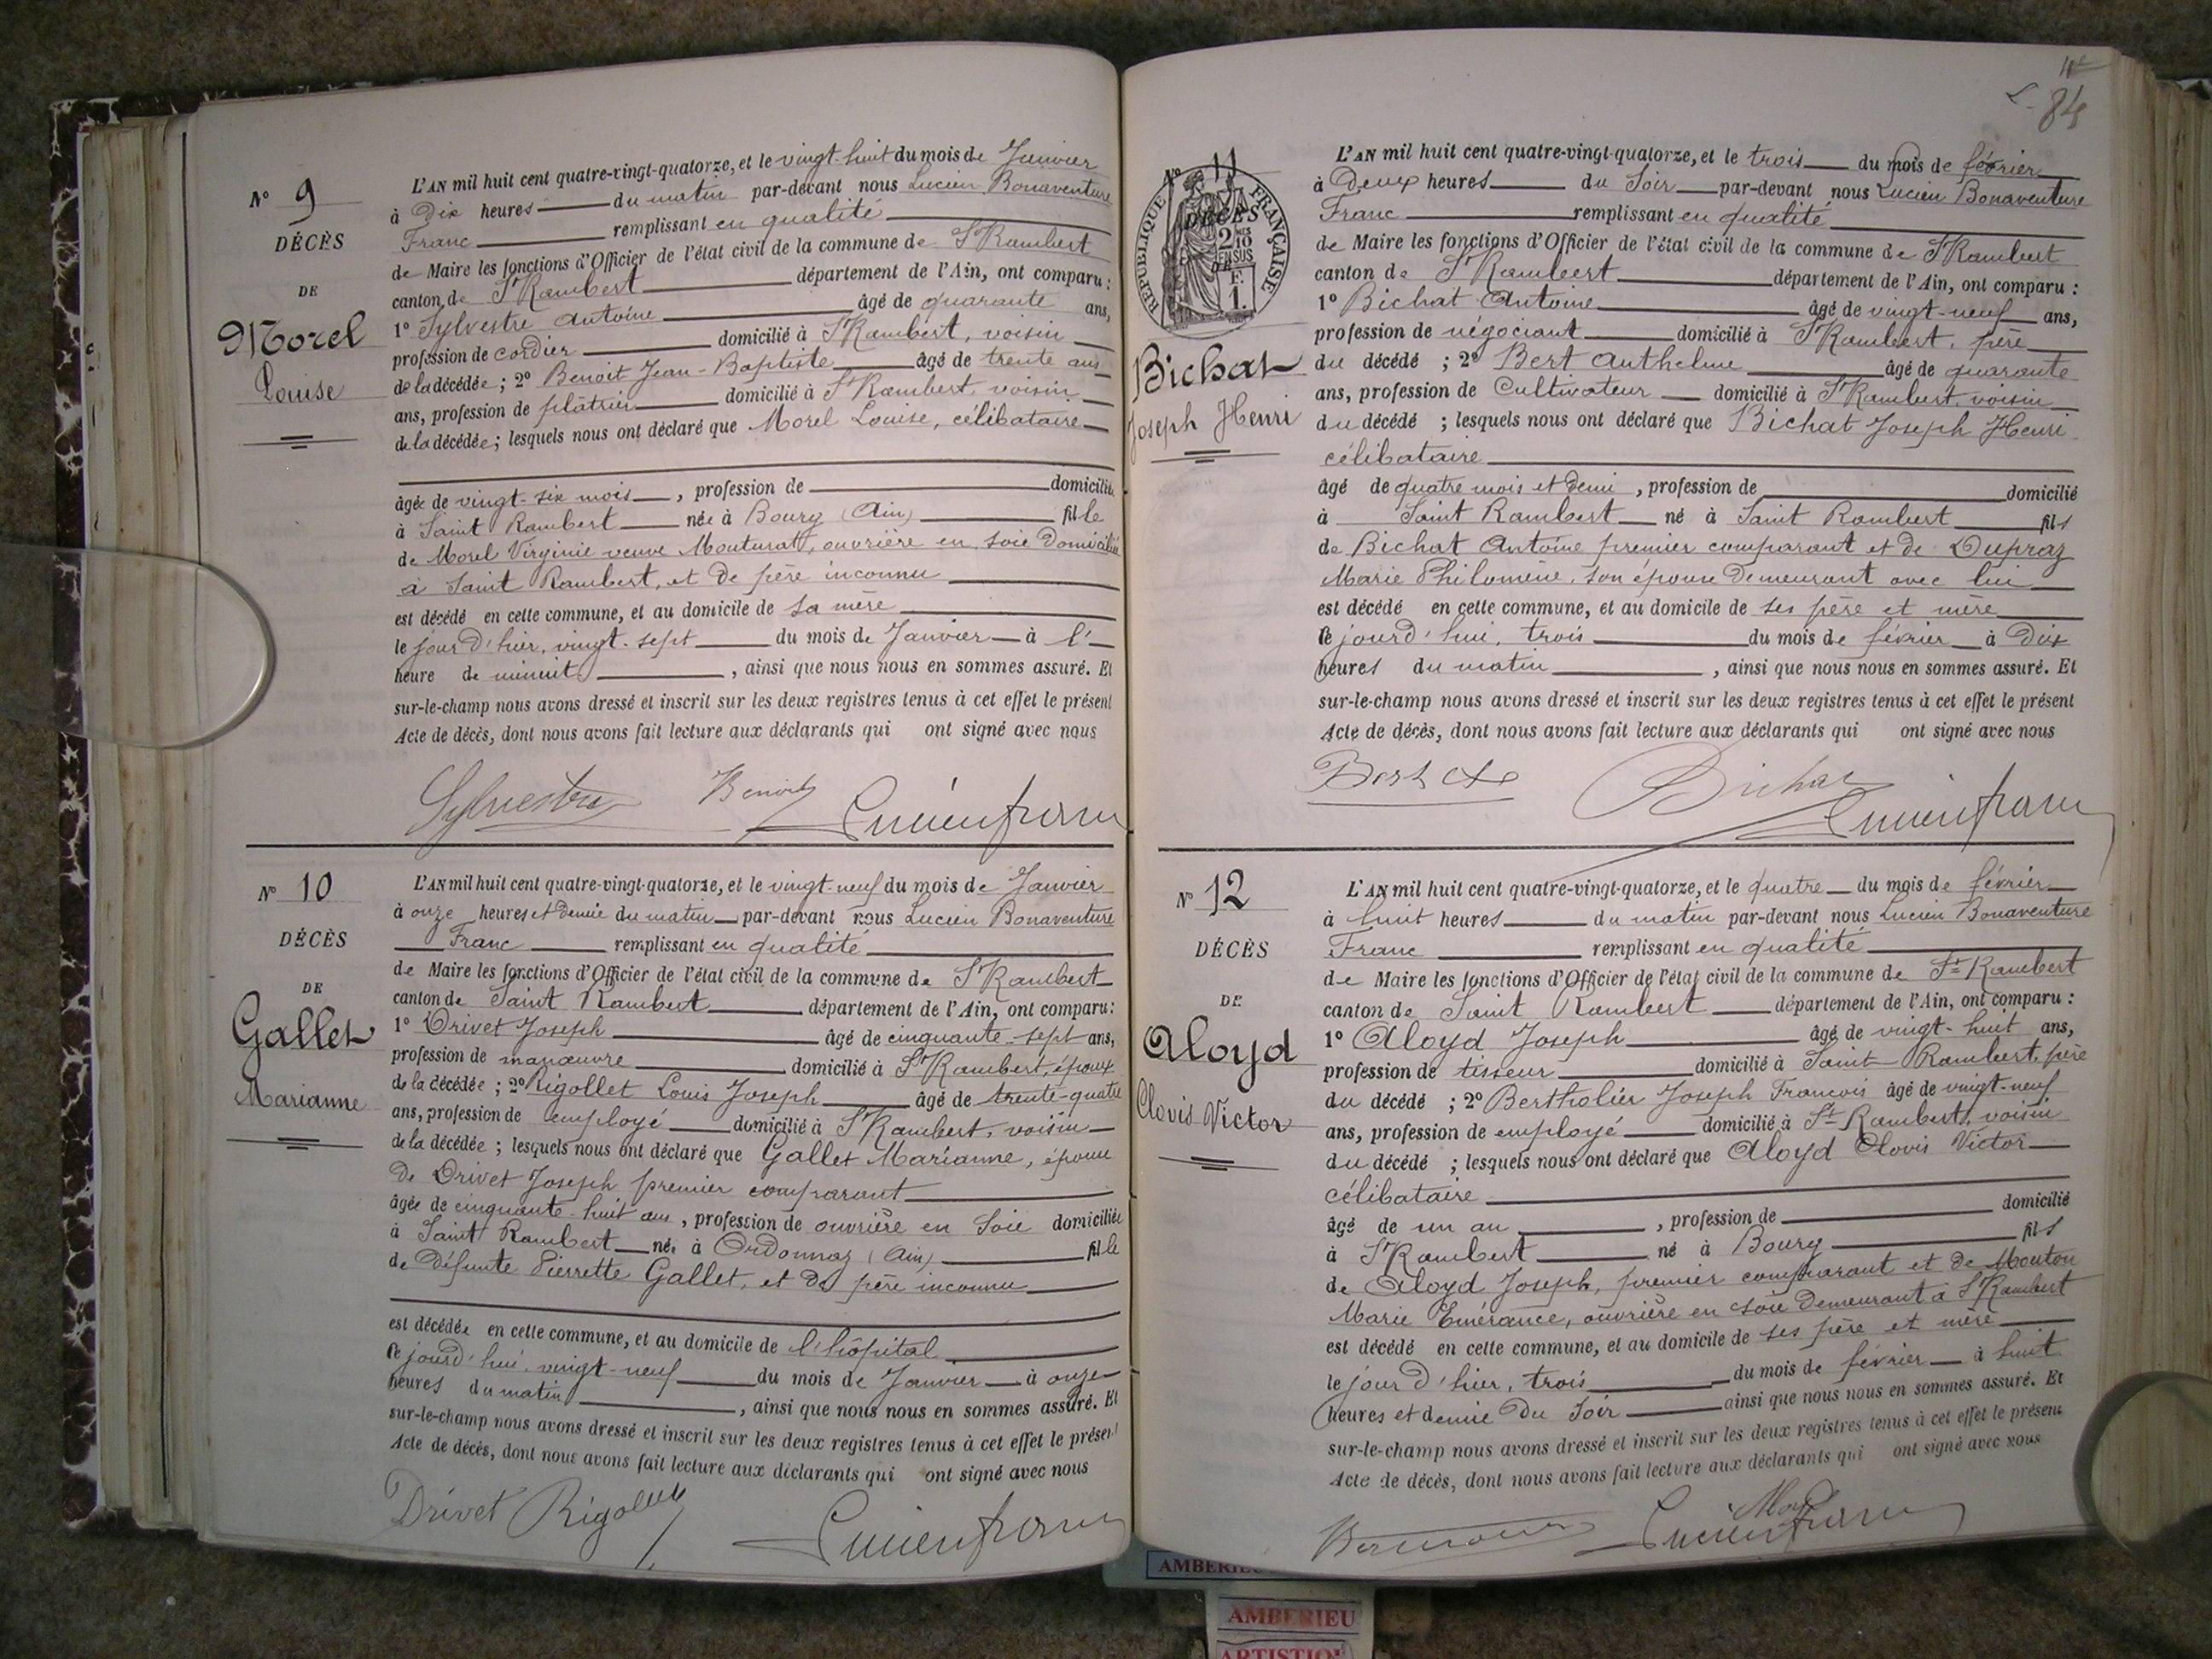 N° 9
DÉCÈS
DE
Morel
Louise
L'AN mil huit cent quatre-vingt-quatorze, et le vingt-huit du mois de Janvier
à Dix heures du matin par-devant nous Lucien Bonaventure
Franc remplissant en qualité
de Maire les fonctions d'Officier de l'état civil de la commune de St Rambert
canton de St Rambert département de l'Ain, ont comparu :
1° Sylvestre Antoine âgé de quarante ans,
profession de cordier domicilié à St Rambert, voisin
de la décédée ; 2° Benoit Jean-Baptiste âgé de trente ans
ans, profession de plâtrier domicilié à St Rambert, voisin
de la décédée ; lesquels nous ont déclaré que Morel Louise, célibataire
âgée de vingt-six mois, profession de domiciliée
à Saint Rambert née à Bourg (Ain) fille
de Morel Virginie veuve ouvrière en soie domiciliée
à Saint Rambert, et de père inconnu
est décédé en cette commune, et au domicile de sa mère
le jour d'hier, vingt-sept du mois de Janvier à l'
heure de minuit, ainsi que nous nous en sommes assuré. Et
sur-le-champ nous avons dressé et inscrit sur les deux registres tenus à cet effet le présent
Acte de décès, dont nous avons fait lecture aux déclarants qui ont signé avec nous
Sylvestre Benoit Lucien franc
N° 10
DÉCÈS
DE
Gallet
Marianne
L'AN mil huit cent quatre-vingt-quatorze, et le vingt-neuf du mois de Janvier
à onze heures et demie du matin par-devant nous Lucien Bonaventure
Franc remplissant en qualité
de Maire les fonctions d'Officier de l'état civil de la commune de St Rambert
canton de Saint Rambert département de l'Ain, ont comparu :
1° Drivet Joseph âgé de cinquante-sept ans,
profession de manœuvre domicilié à St Rambert, époux
de la décédée ; 2° Rigollet Louis Joseph âgé de trente-quatre
ans, profession de employé domicilié à St Rambert, voisin
de la décédée ; lesquels nous ont déclaré que Gallet Marianne, épouse
de Drivet Joseph premier comparant
âgée de cinquante-huit ans, profession de ouvrière en soie domiciliée
à Saint Rambert née à Ordonnaz (Ain) fille
de défunte Pierrette Gallet, et de père inconnu
est décédée en cette commune, et au domicile de l'hôpital
ce jourd'hui, vingt-neuf du mois de Janvier à onze
heures du matin, ainsi que nous nous en sommes assuré. Et
sur-le-champ nous avons dressé et inscrit sur les deux registres tenus à cet effet le présent
Acte de décès, dont nous avons fait lecture aux déclarants qui ont signé avec nous
Drivet Rigollet Lucien franc
84
N° 11
RÉPUBLIQUE FRANÇAISE
DÉCÈS
2/10 EN SUS
DE
F. 1.
Bichat
Joseph Henri
L'AN mil huit cent quatre-vingt-quatorze, et le trois du mois de février
à Deux heures du soir par-devant nous Lucien Bonaventure
Franc remplissant en qualité
de Maire les fonctions d'Officier de l'état civil de la commune de St Rambert
canton de St Rambert département de l'Ain, ont comparu :
1° Bichat Antoine âgé de vingt-neuf ans,
profession de négociant domicilié à St Rambert, père
du décédé ; 2° Bert Anthelme âgé de quarante
ans, profession de Cultivateur domicilié à St Rambert, voisin
du décédé ; lesquels nous ont déclaré que Bichat Joseph Henri
célibataire
âgé de quatre mois et demi, profession de domicilié
à Saint Rambert né à Saint Rambert fils
de Bichat Antoine premier comparant et de Dupraz
Marie Philomène, son épouse demeurant avec lui
est décédé en cette commune, et au domicile de ses père et mère
ce jourd'hui, trois du mois de février à Dix
heures du matin, ainsi que nous nous en sommes assuré. Et
sur-le-champ nous avons dressé et inscrit sur les deux registres tenus à cet effet le présent
Acte de décès, dont nous avons fait lecture aux déclarants qui ont signé avec nous
Bert Bichat Lucien franc
N° 12
DÉCÈS
DE
Aloyd
Clovis Victor
L'AN mil huit cent quatre-vingt-quatorze, et le quatre du mois de février
à huit heures du matin par-devant nous Lucien Bonaventure
Franc remplissant en qualité
de Maire les fonctions d'Officier de l'état civil de la commune de St Rambert
canton de Saint Rambert département de l'Ain, ont comparu :
1° Aloyd Joseph âgé de vingt-huit ans,
profession de tisseur domicilié à Saint Rambert, père
du décédé ; 2° Bertholier Joseph François âgé de vingt-neuf
ans, profession de employé domicilié à St Rambert, voisin
du décédé ; lesquels nous ont déclaré que Aloyd Clovis Victor
célibataire
âgé de un an, profession de domicilié
à St Rambert né à Bourg fils
de Aloyd Joseph, premier comparant et de Mouton
Marie Emérance, ouvrière en soie demeurant à St Rambert
est décédé en cette commune, et au domicile de ses père et mère
le jour d'hier, trois du mois de février à huit
heures et demie du soir ainsi que nous nous en sommes assuré. Et
sur-le-champ nous avons dressé et inscrit sur les deux registres tenus à cet effet le présent
Acte de décès, dont nous avons fait lecture aux déclarants qui ont signé avec nous
Lucien franc
AMBERIEU
ARTISTIQ